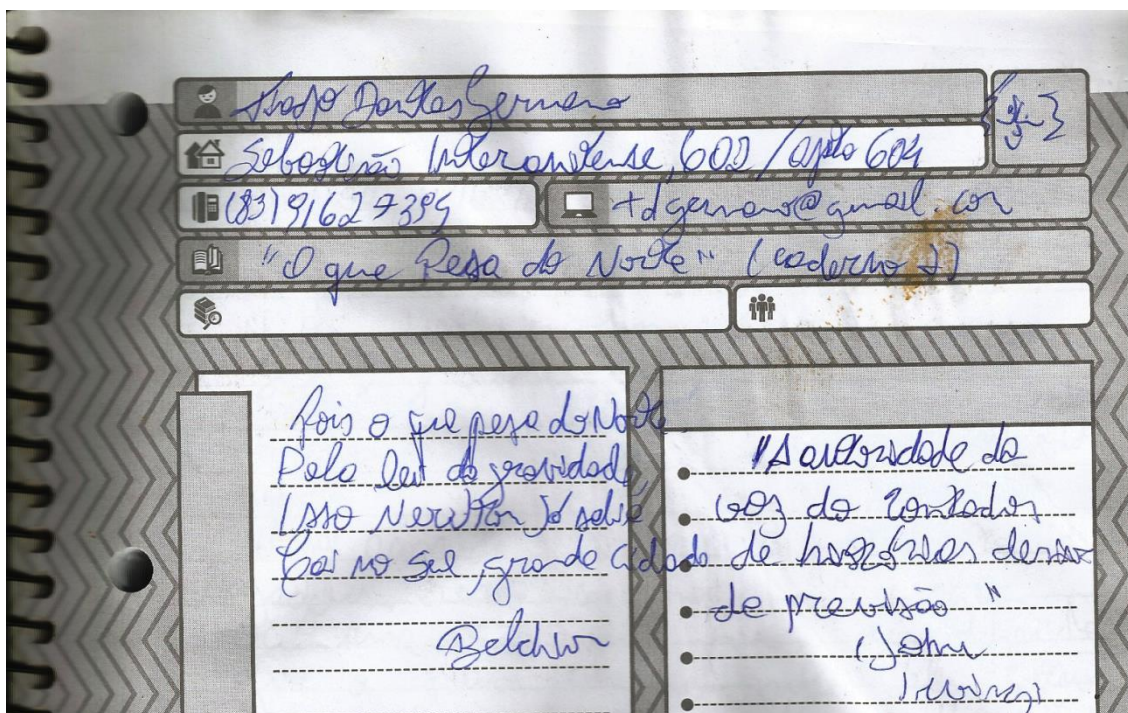 Tiago Dantas Germano
Sebastião Interaminense, 602 / apto 604
(83) 91627394
tdgermano@gmail.com
"O que Pesa do Norte" (caderno 1)
Pois o que pesa do Norte
Pela lei da gravidade,
Isso Newton já sabia
Cai no sul, grande cidade
Belchior
"A autoridade da
voz do contador
de histórias
de previsão"
(John
Irving)